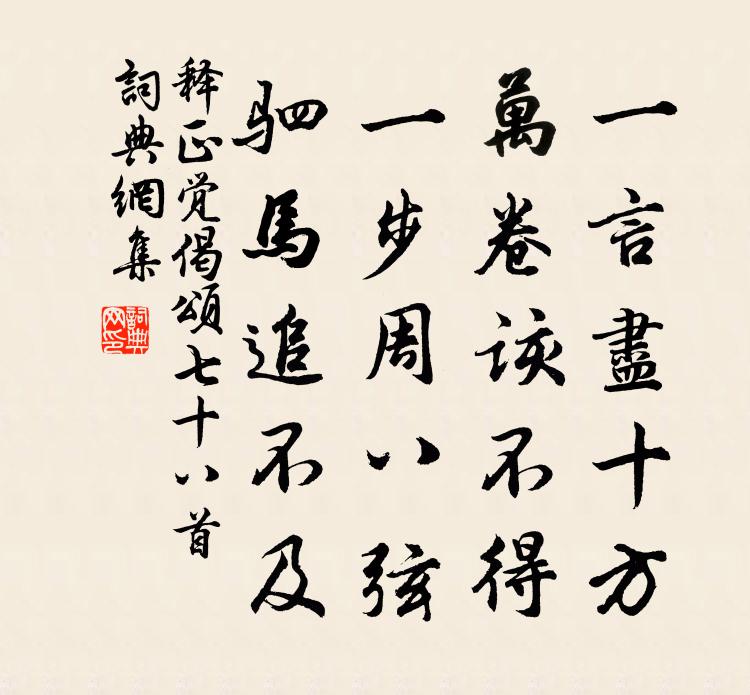 一言盡十方
萬卷該不得
一步周八弦
駟馬追不及
释正觉偈頌七十八首
詞典網集
詞典网印